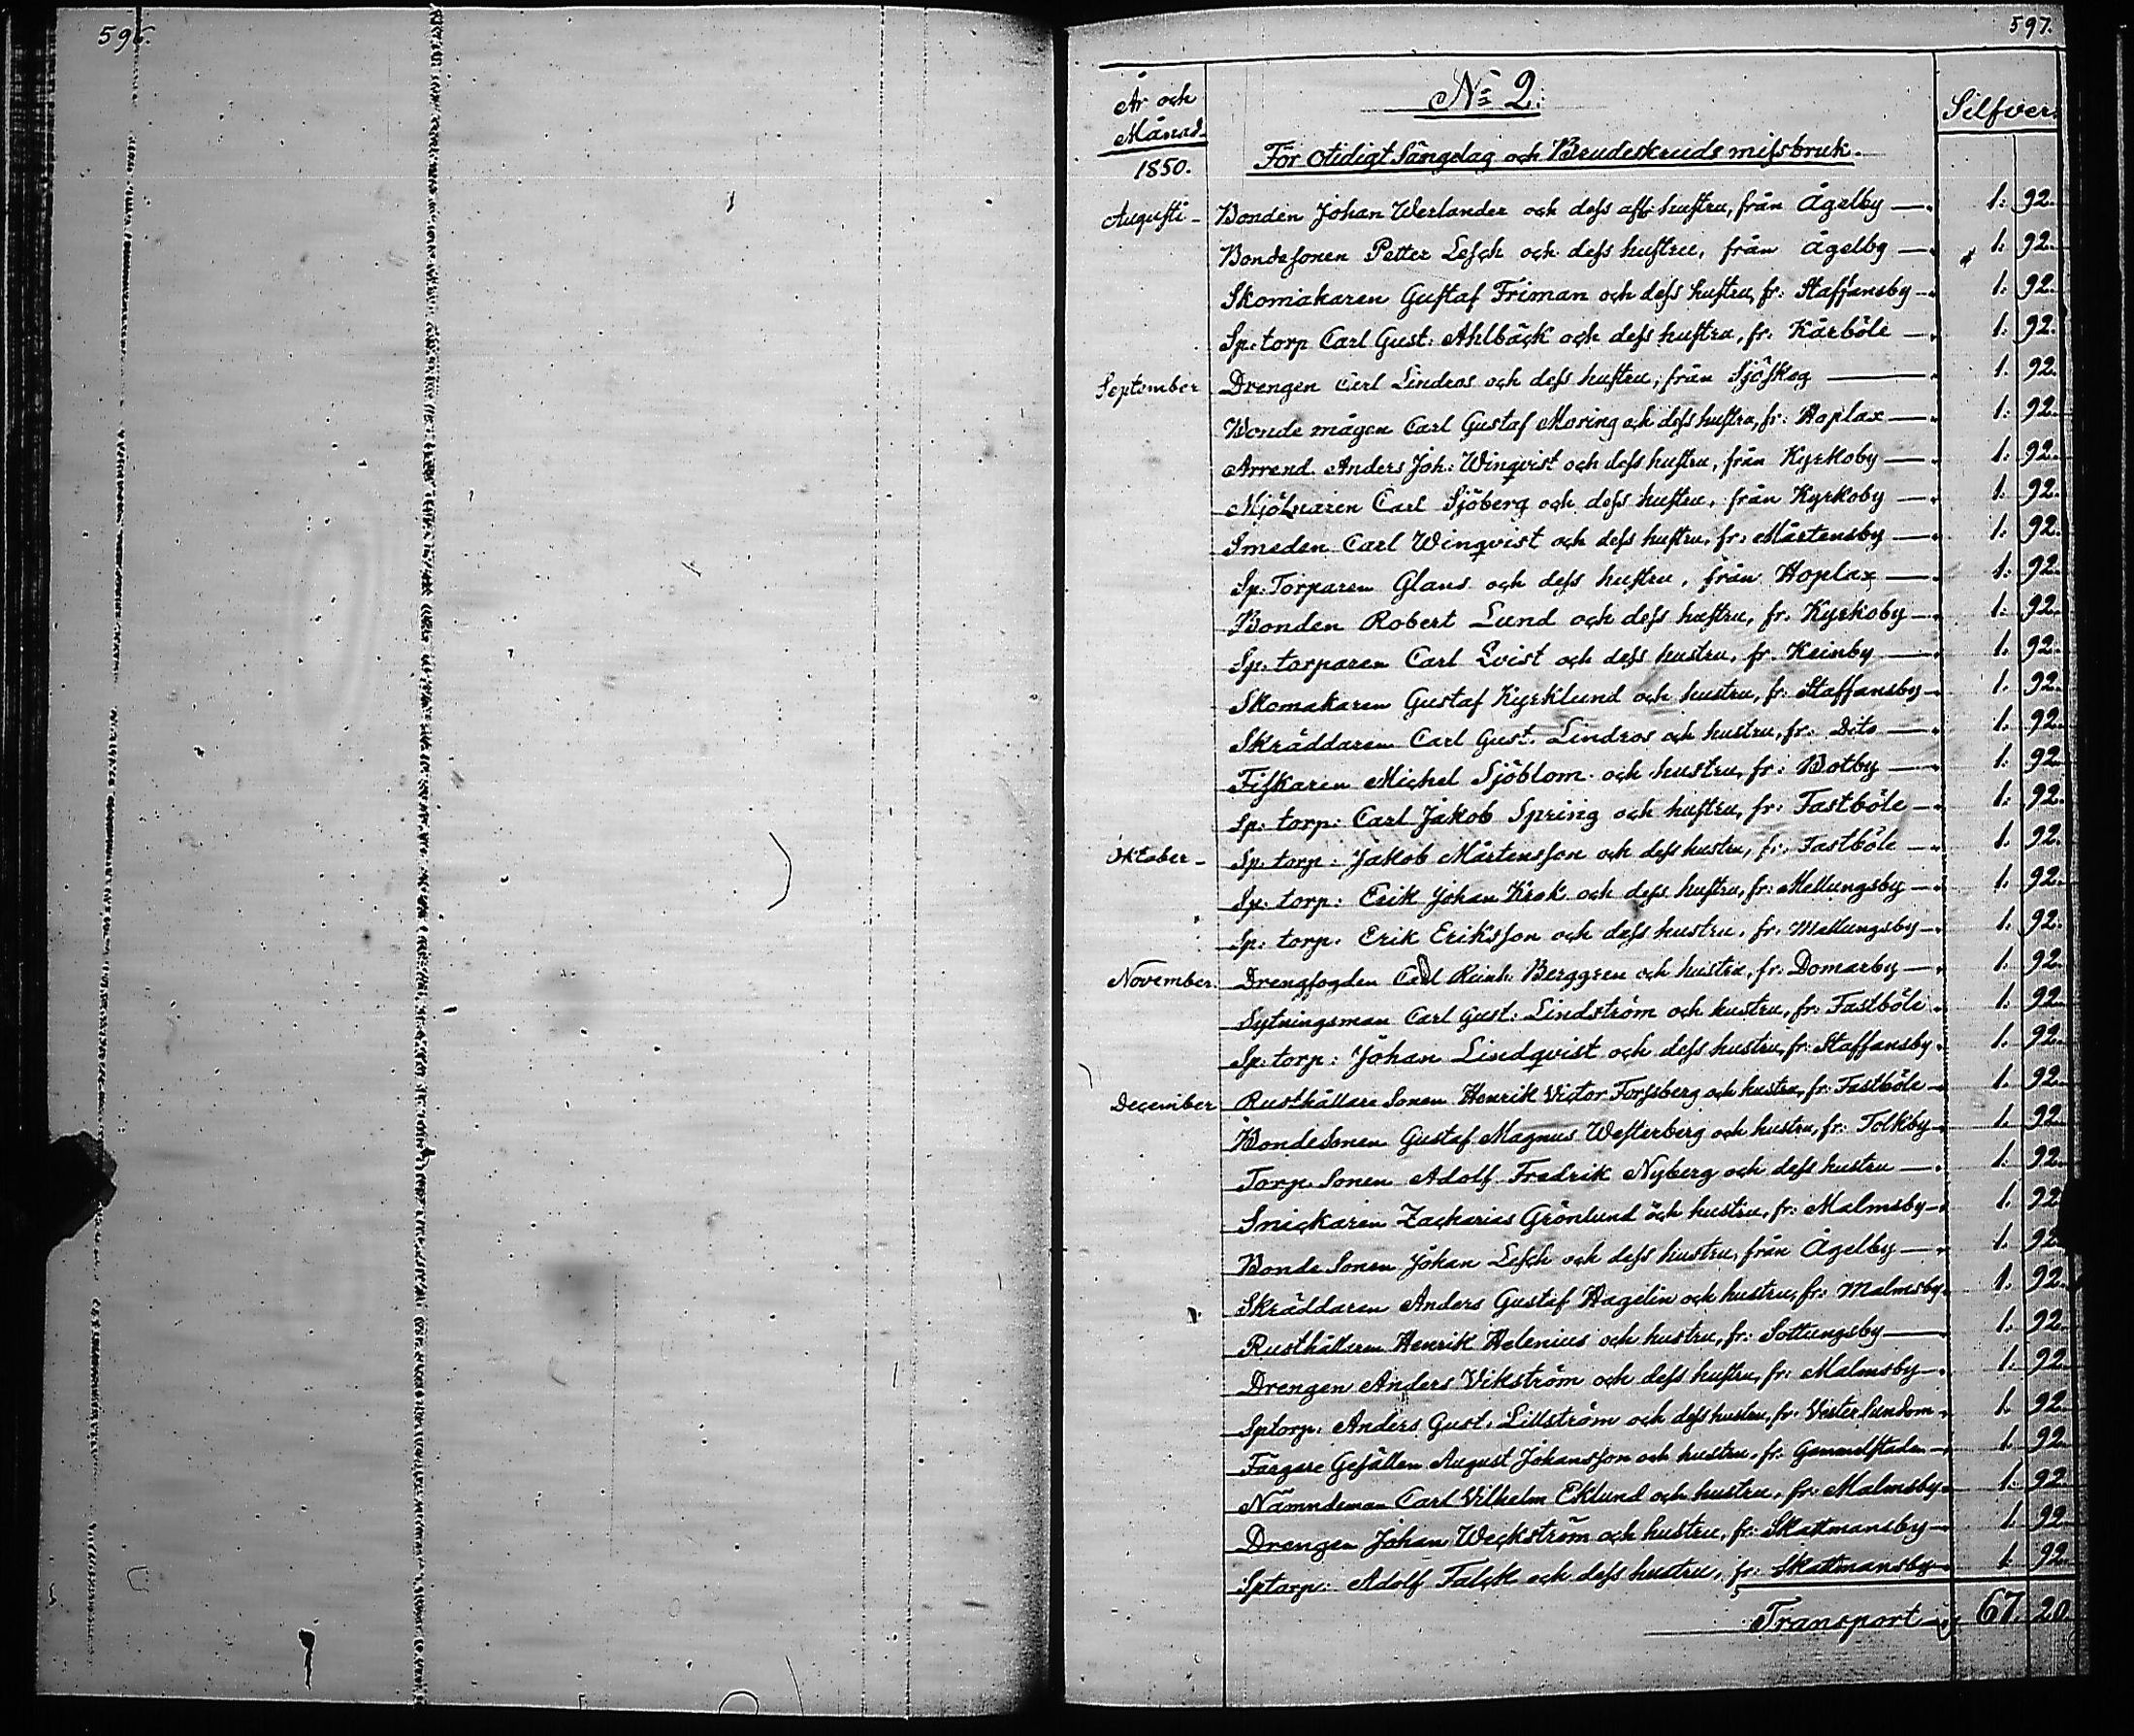 596.
597.
År och Månad
No 2.
Silfver.
1850.
För otidigt Sängelag och Brudeskruds missbruk.
Augusti - Bonden Johan Werlander och dess hustru, från Ågelby — 1: 92.
Bondesonen Petter Lesch och dess hustru, från Ågelby — 1: 92.
Skomakaren Gustaf Friman och dess hustru, fr: Staffansby — 1: 92.
Sp: torp Carl Gust: Ahlbäck och dess hustru, fr. Kårböle — 1: 92.
September Drengen Carl Lindros och dess hustru, från Sjöskog — 1. 92.
Bonde mågen Carl Gustaf Moring och dess hustru, fr: Hoplax — 1: 92.
Arrend. Anders Joh: Winqvist och dess hustru, från Kyrkoby — 1: 92.
Mjölnaren Carl Sjöberg och dess hustru, från Kyrkoby — 1: 92.
Smeden Carl Winqvist och dess hustru, fr: Mårtensby — 1: 92.
Sp: Torparen Glans och dess hustru, från Hoplax — 1: 92.
Bonden Robert Lund och dess hustru, fr. Kyrkoby — 1: 92.
Sp: torparen Carl Qvist och dess hustru, fr. Heinby — 1. 92.
Skomakaren Gustaf Kyrklund och hustru, fr: Staffansby — 1. 92.
Skräddaren Carl Gust. Lindros och hustru, fr: Dito — 1. 92.
Fiskaren Michel Sjöblom och hustru, fr: Botby — 1. 92.
Sp: torp: Carl Jakob Spring och hustru, fr: Fastböle — 1. 92.
Oktober - Sp: torp: Jakob Mårtensson och dess hustru, fr. Fastböle — 1. 92.
Sp: torp: Erik Johan Krok och dess hustru, fr: Mellungsby — 1. 92.
Sp: torp: Erik Eriksson och dess hustru, fr. Mellungsby — 1. 92.
November. Drengfogden Carl Reinh: Berggren och hustru, fr: Domarby — 1. 92.
Sytningsman Carl Gust: Lindström och hustru, fr: Fastböle. 1. 92.
Sp: torp: Johan Lindqvist och dess hustru, fr: Staffansby. 1. 92.
December Rusthållare Sonen Henrik Victor Forssberg och hustru, fr: Fastböle — 1. 92.
Bondesonen Gustaf Magnus Westerberg och hustru, fr: Tolkby — 1. 92.
Torp. Sonen Adolf Fredrik Nyberg och dess hustru — 1. 92.
Snickaren Zackarias Grönlund och hustru, fr: Malmsby — 1. 92
Bonde Sonen Johan Lesch och dess hustru, från Ågelby — 1. 92
Skräddaren Anders Gustaf Hagelin och hustru, fr: Malmsby. 1. 92.
Rusthållaren Henrik Helenius och hustru, fr: Sottungsby — 1. 92
Drengen Anders Vikström och dess hustru, fr: Malmsby — 1. 92
Sptorp: Anders Gust: Lillström och dess hustru, fr. Vester Sundom. 1. 92
Färgare Gesällen August Johansson och hustru, fr: Gammelstaden — 1. 92.
Nämndeman Carl Vilhelm Eklund och hustru, fr: Malmsby — 1. 92
Drengen Johan Weckström och hustru, fr: Skattmansby — 1. 92
Sptorp: Adolf Falck och dess hustru, fr: Skattmansby — 1. 92.
Transport — 67. 20